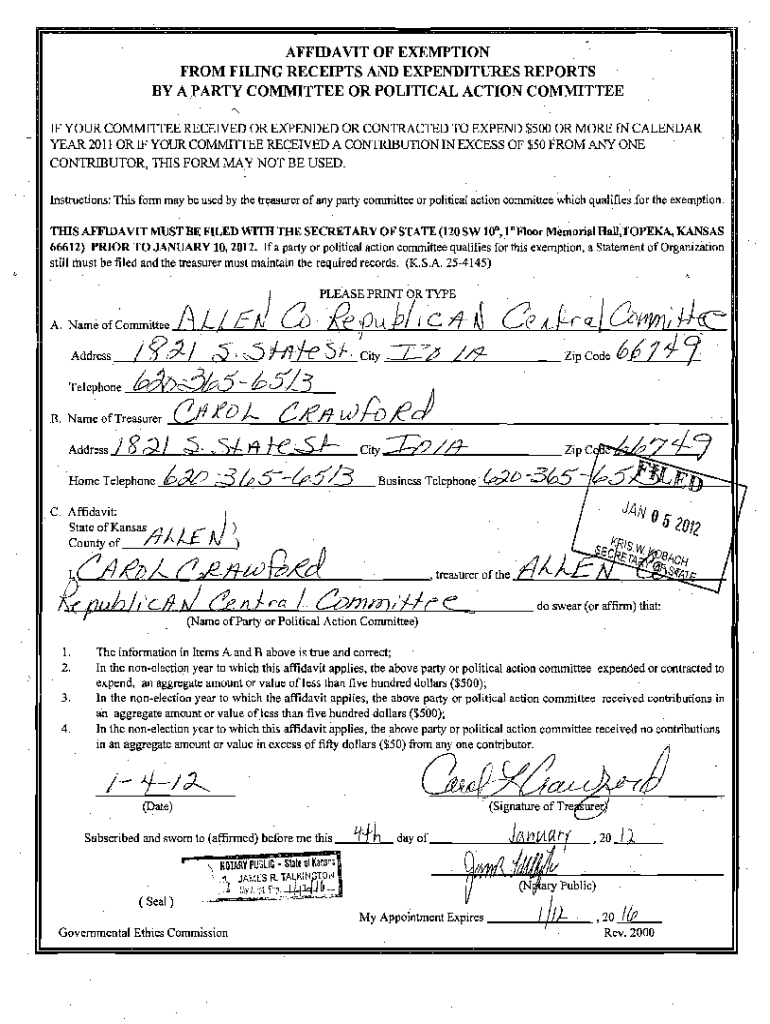 AFFIDAVIT OF EXEMPTION
FROM FILING RECEIPTS AND EXPENDITURES REPORTS
BY A PARTY COMMITTEE OR POLITICAL ACTION COMMITTEE
IF YOUR COMMITTEE RECEIVED OR EXPENDED OR CONTRACTED TO EXPEND $500 OR MORE IN CALENDAR
YEAR 2011 OR IF YOUR COMMITTEE RECEIVED A CONTRIBUTION IN EXCESS OF $50 FROM ANY ONE
CONTRIBUTOR, THIS FORM MAY NOT BE USED.
Instructions: This form may be used by the treasurer of any party committee or political action committee which qualifies for the exemption.
THIS AFFIDAVIT MUST BE FILED WITH THE SECRETARY OF STATE (120 SW 10th, 1st Floor Memorial Hall, TOPEKA, KANSAS
66612) PRIOR TO JANUARY 10, 2012. If a party or political action committee qualifies for this exemption, a Statement of Organization
still must be filed and the treasurer must maintain the required records. (K.S.A. 25-4145)
PLEASE PRINT OR TYPE
A. Name of Committee ALLEN Co. RepublicAN Central Committee
Address 1821 S. STAte St. City IOlA Zip Code 66749
Telephone 620-365-6513
B. Name of Treasurer CAROL CRAWford
Address 1821 S. STAte St City IOlA Zip Code 66749
Home Telephone 620-365-6513 Business Telephone 620-365-651
FILED
JAN 05 2012
KRIS W. KOBACH
SECRETARY OF STATE
C. Affidavit:
State of Kansas )
County of ALLEN )
I, CAROL CRAWford, treasurer of the ALLEN Co.
RepublicAN Central Committee do swear (or affirm) that:
(Name of Party or Political Action Committee)
1. The information in Items A and B above is true and correct;
2. In the non-election year to which this affidavit applies, the above party or political action committee expended or contracted to
expend, an aggregate amount or value of less than five hundred dollars ($500);
3. In the non-election year to which the affidavit applies, the above party or political action committee received contributions in
an aggregate amount or value of less than five hundred dollars ($500);
4. In the non-election year to which this affidavit applies, the above party or political action committee received no contributions
in an aggregate amount or value in excess of fifty dollars ($50) from any one contributor.
1-4-12 Carol L Crawford
(Date) (Signature of Treasurer)
Subscribed and sworn to (affirmed) before me this 4th day of January, 2012
NOTARY PUBLIC - State of Kansas
JAMES R. TALKINGTON
My Appt. Exp. 1/12/16
(Notary Public)
( Seal )
My Appointment Expires 1/12, 2016
Governmental Ethics Commission Rev. 2000